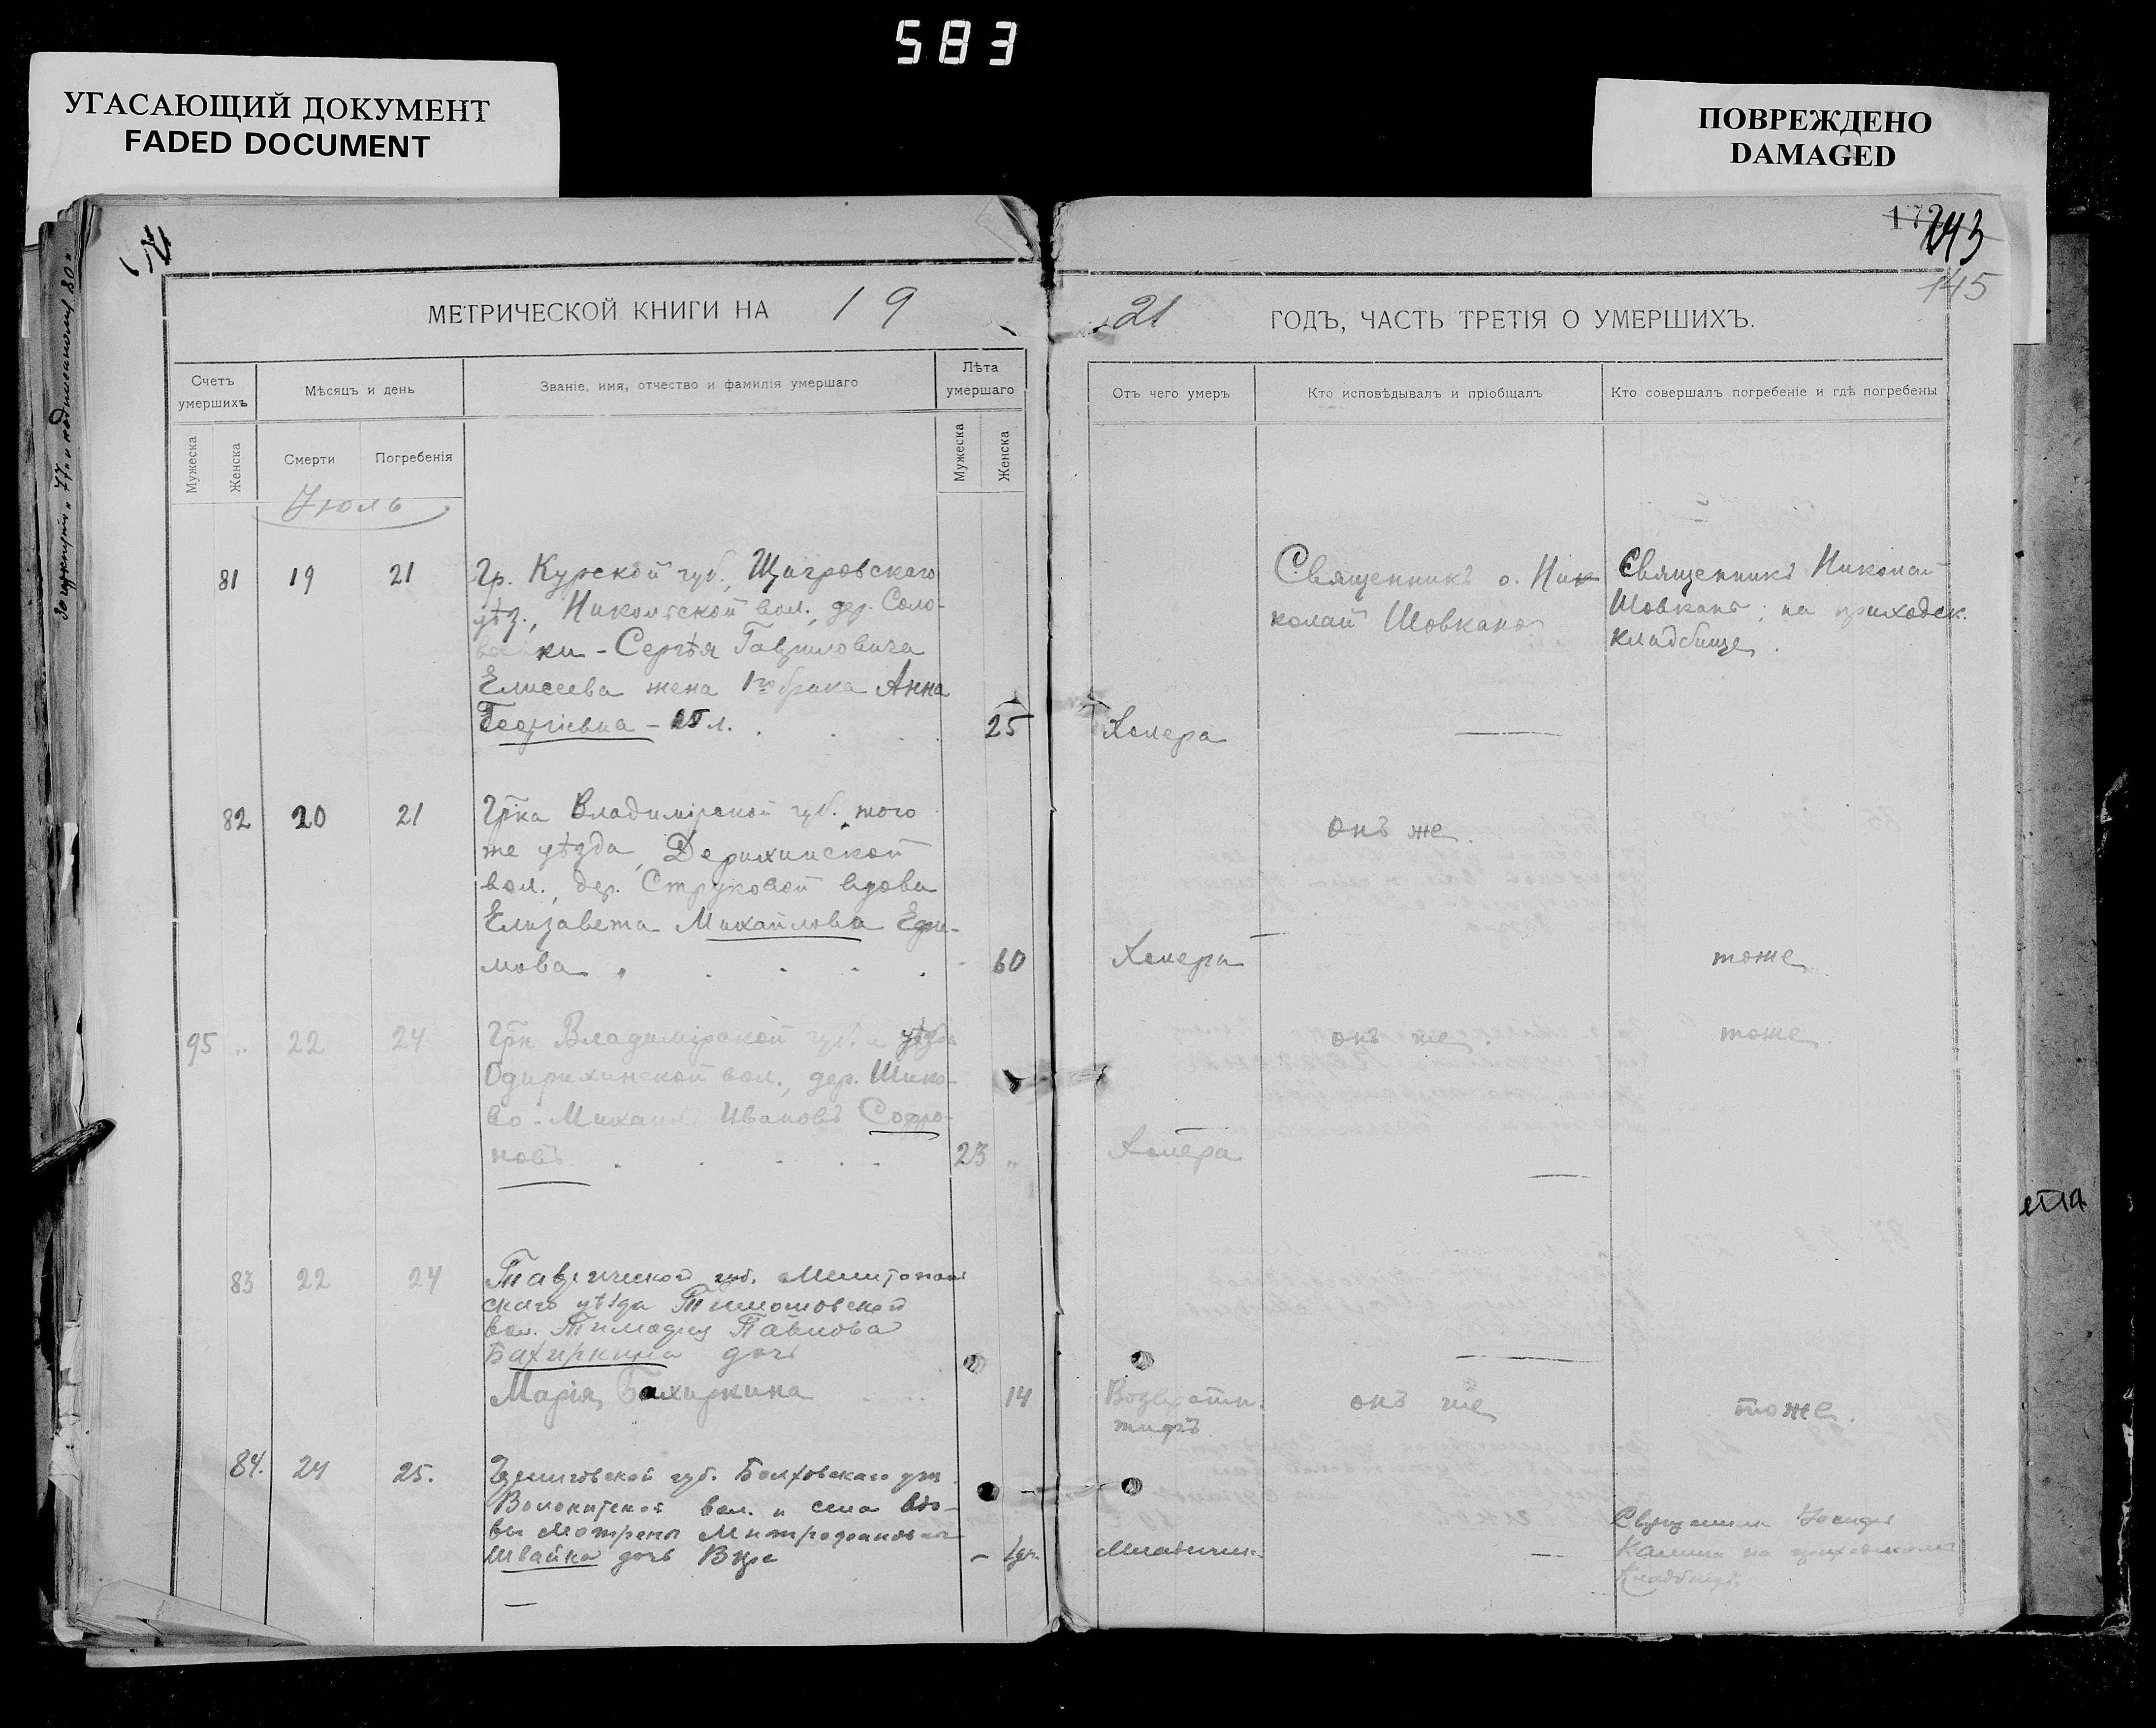 583
УГАСАЮЩИЙ ДОКУМЕНТ
FADED DOCUMENT
ПОВРЕЖДЕНО
DAMAGED
243
145
МЕТРИЧЕСКОЙ КНИГИ НА 19
21 ГОДЪ, ЧАСТЬ ТРЕТІЯ О УМЕРШИХЪ.
Счетъ умершихъ
Мѣсяцъ и день
Званіе, имя, отчество и фамилія умершаго
Лѣта умершаго
Мужеска
Женска
Смерти
Погребенія
Мужеска
Женска
Отъ чего умеръ
Кто исповѣдывалъ и пріобщалъ
Кто совершалъ погребеніе и гдѣ погребены
Июль
81 19 21 Гр. Курской губ., Щигровскаго
уѣз., Никольской вол., дер. Соло-
ки - Сергѣя Гавриловича
Елисеева жена 1го брака Анна
Георгіевна - 25 л. 25
Холера
Священникъ о. Ник
колай Шовкань
Священникъ Николай
Шовкань; на приходск.
кладбище.
82 20 21 Гр-ка Владимірской губ. того
же уѣзда, Дерихинской
вол., дер. Струковой вдова
Елизавета Михайлова Ефи-
мова 60
Холера
онъ же
тоже
95 22 24 Гр-н Владимірской губ. и уѣзда
Одерихинской вол., дер. Шико-
во - Михаилъ Ивановъ Софро-
новъ 23 "
Холера
онъ же.
тоже.
83 22 24 Таврической губ. Мелитополь
скаго уѣзда Тимошовской
вол. Тимофея Павлова
Бахиркина дочь
Марія Бахиркина 14
Возвратн.
тифъ
онъ же
тоже.
84. 24 25. Черниговской губ.
вол. и села вдо-
вы Мотрены Митрофановой
Швайка дочь Вѣра
Священник
Калина на приходском
кладбище.